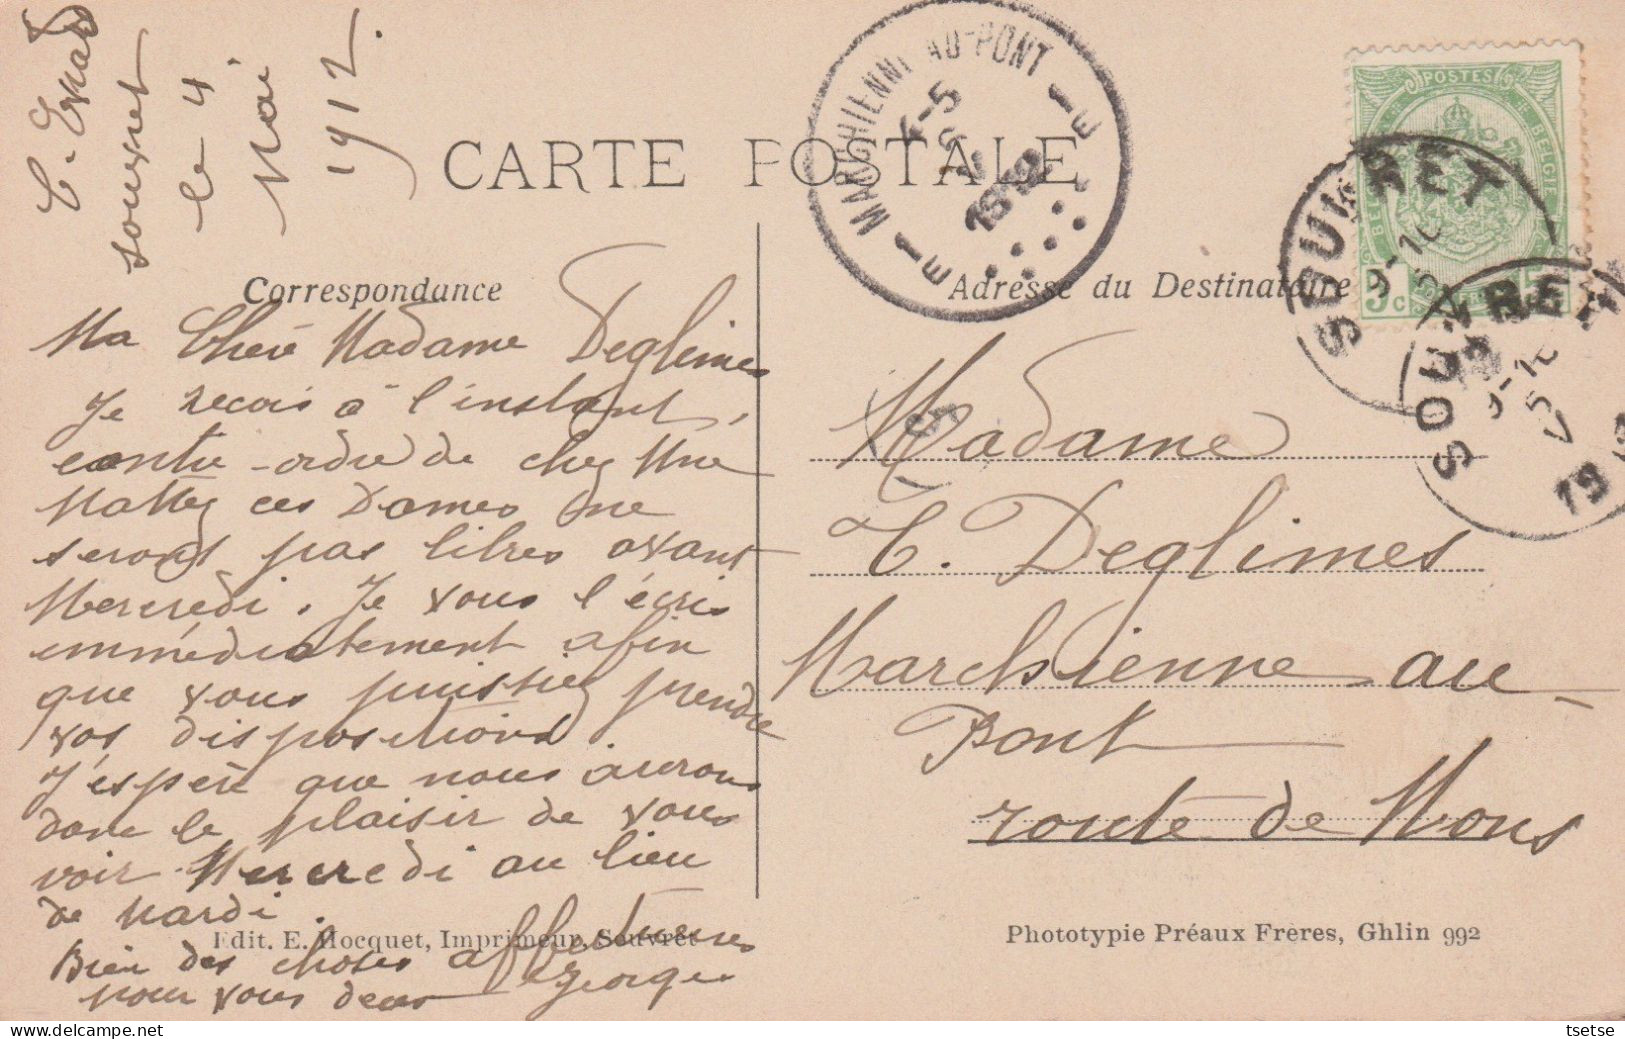 Souvret
le 4
Mai
1912.
CARTE POSTALE
MARCHIENNE-AU-PONT
4-5
1912
1 E
1 E
POSTES
BELGIQUE
BELGIE
5 C
SOUVRET
9-10
SOUVRET
9-10
5
V
19
Correspondance
Adresse du Destinataire
Ma Chère Madame Deglimes
Je reçois à l'instant,
contre-ordre de chez Mme
Mattez ces Dames ne
seront pas libres avant
Mercredi. Je vous l'écris
immédiatement afin
que vous puissiez prendre
vos dispositions.
J'espère que nous aurons
donc le plaisir de vous
voir Mercredi au lieu
de Mardi.
Bien des choses affectueuses
pour vous deux
Madame
C. Deglimes
Marchienne au-
Pont
route de Mons
Edit. E. Hocquet, Imprimeur, Souvret
Phototypie Préaux Frères, Ghlin 992
tsetse